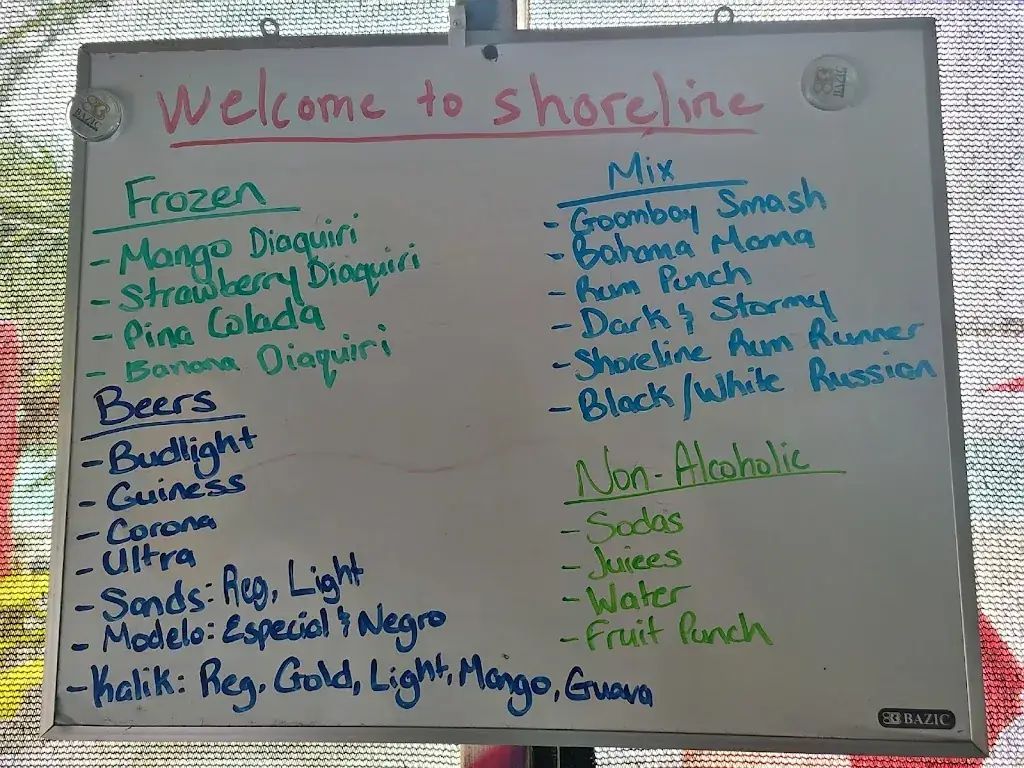 Welcome to shoreline
Frozen
- Mango Diaquiri
- Strawberry Diaquiri
- Pina Colada
- Banana Diaquiri
Beers
- Budlight
- Guiness
- Corona
- Ultra
- Sands: Reg, Light
- Modelo: Especial & Negro
- Kalik: Reg, Gold, Light, Mango, Guava
Mix
- Goombay Smash
- Bahama Mama
- Rum Punch
- Dark & Stormy
- Shoreline Rum Runner
- Black/White Russian
Non-Alcoholic
- Sodas
- Juices
- Water
- Fruit Punch
BAZIC